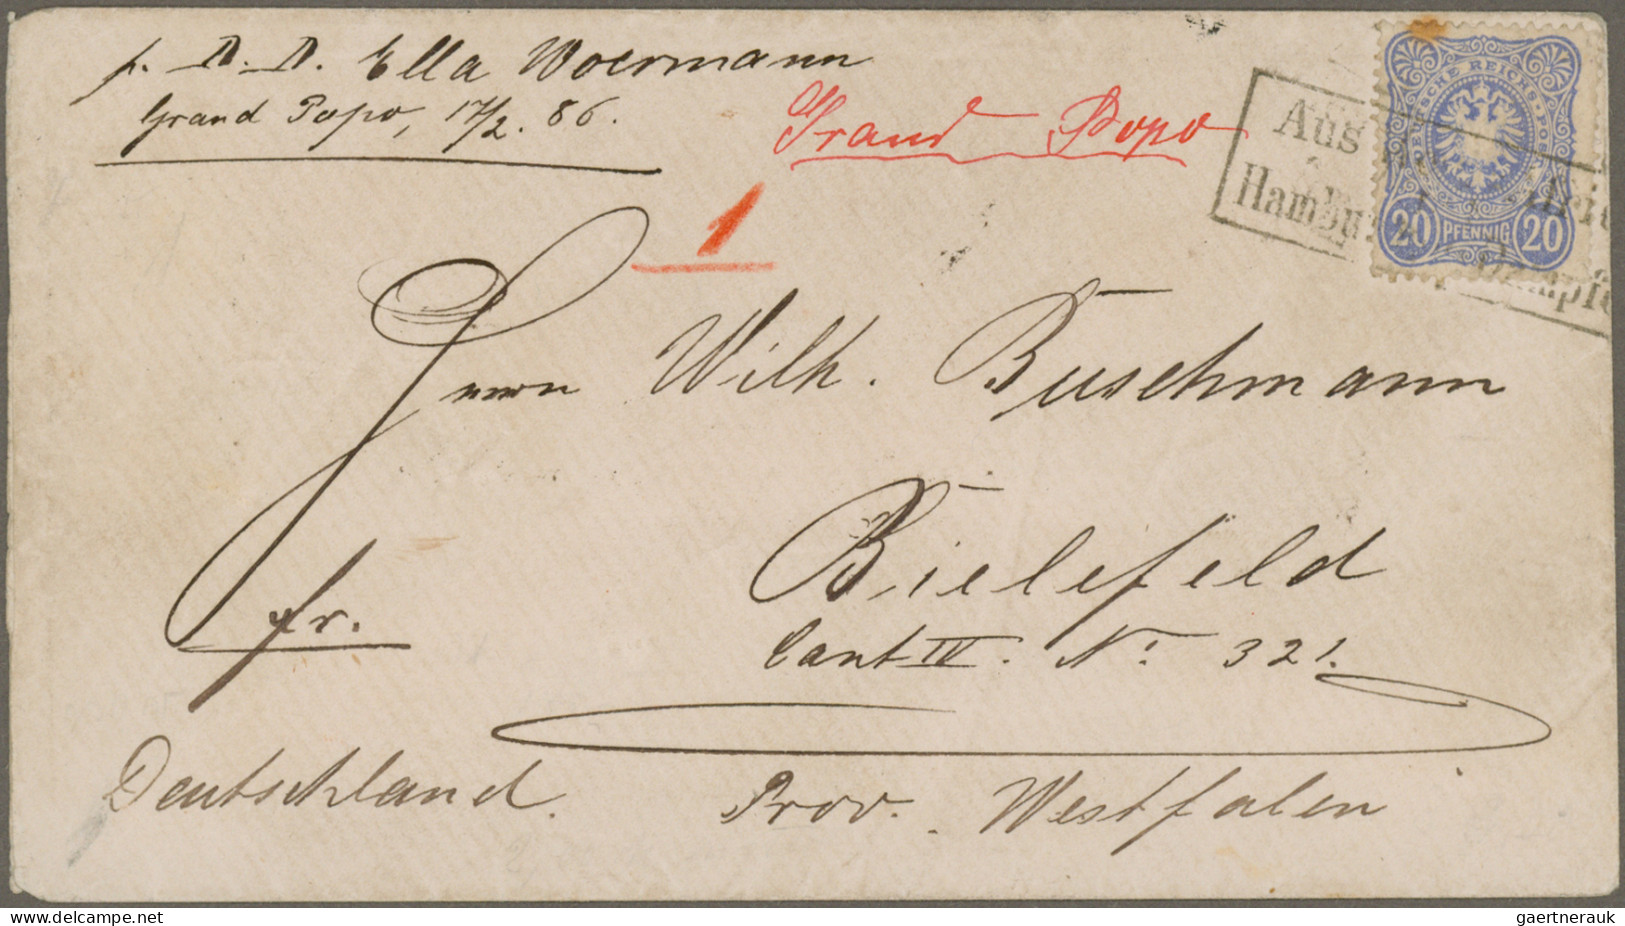 p. D. D. Ella Woermann
Grand Popo, 17/2. 86.
Grand Popo
1
Aus
Hambu
Dampf
DEUTSCHE REICHS-POST
20 PFENNIG 20
Herrn Wilh. Buschmann
Bielefeld
fr.
Cant IV. No. 321.
Deutschland.
Prov. Westfalen
delcampe.net
gaertnerauk